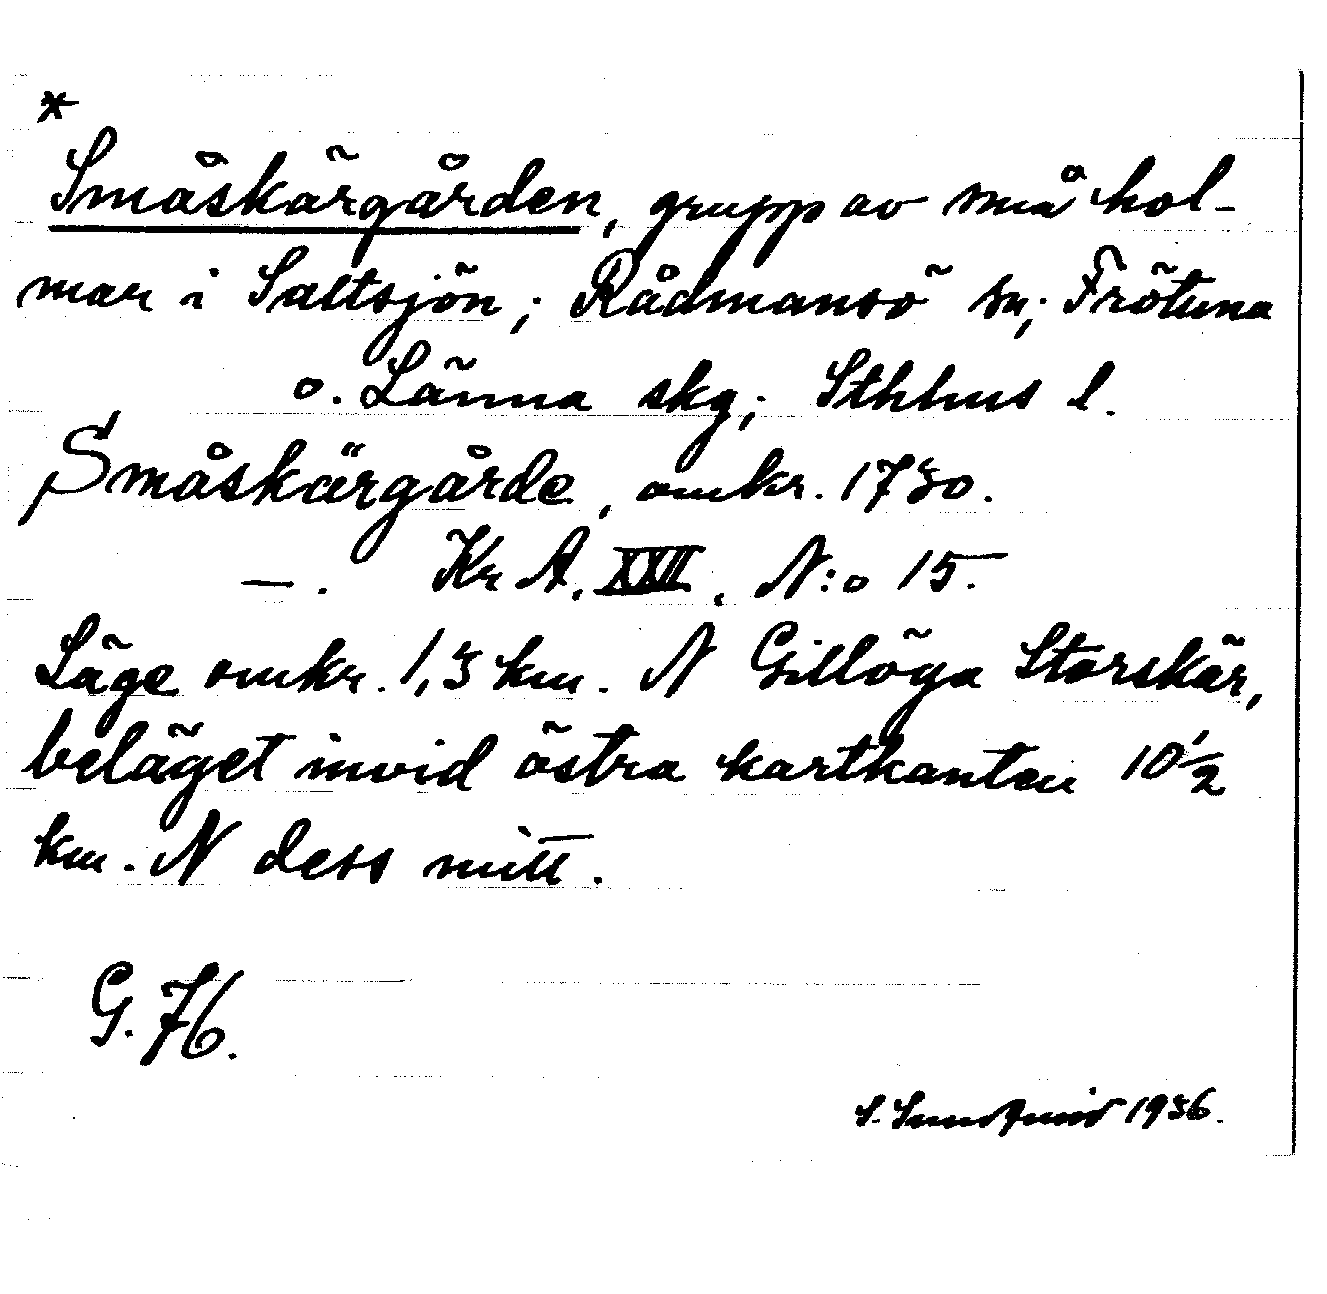 *
Småskärgården, grupp av små hol-
mar i Saltsjön; Rådmansö sn; Frötuna
o. Länna skg; Sthlms l.
Småskärgårde, omkr. 1730.
—. Kr A. XXII. N:o 15.
Läge omkr. 1,3 km. N Gillöga Storskär,
beläget invid östra kartkanten 10 1/2
km. N dess mitt.
G. 76.
S. 1936.